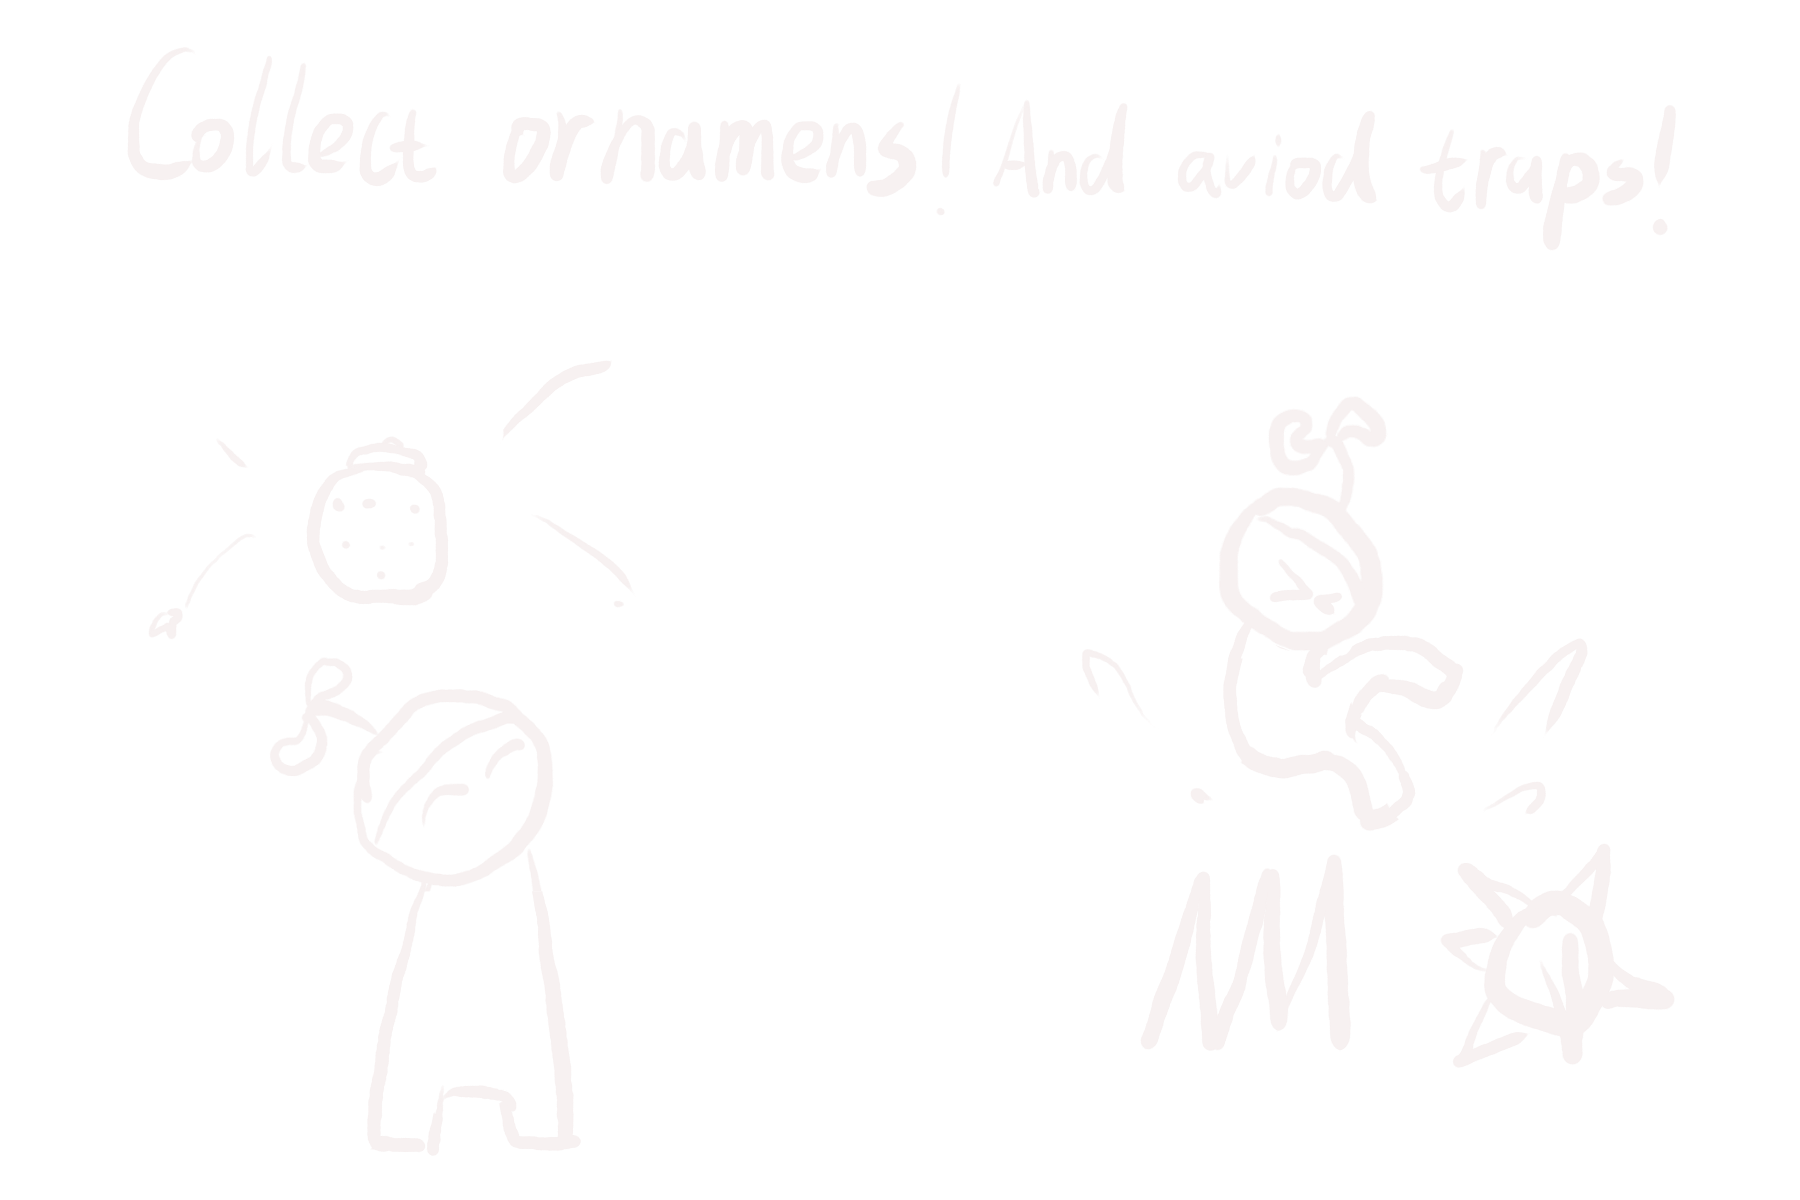 Collect ornamens! And aviod traps!